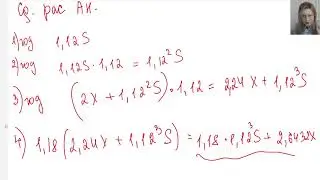 Ср. рас Ан.
1) год 1,12S
2) год 1,12S · 1,12 = 1,12²S
3) год (2x + 1,12²S) · 1,12 = 2,24x + 1,12³S
4) 1,18(2,24x + 1,12³S) = 1,18 · 1,12³S + 2,6432x